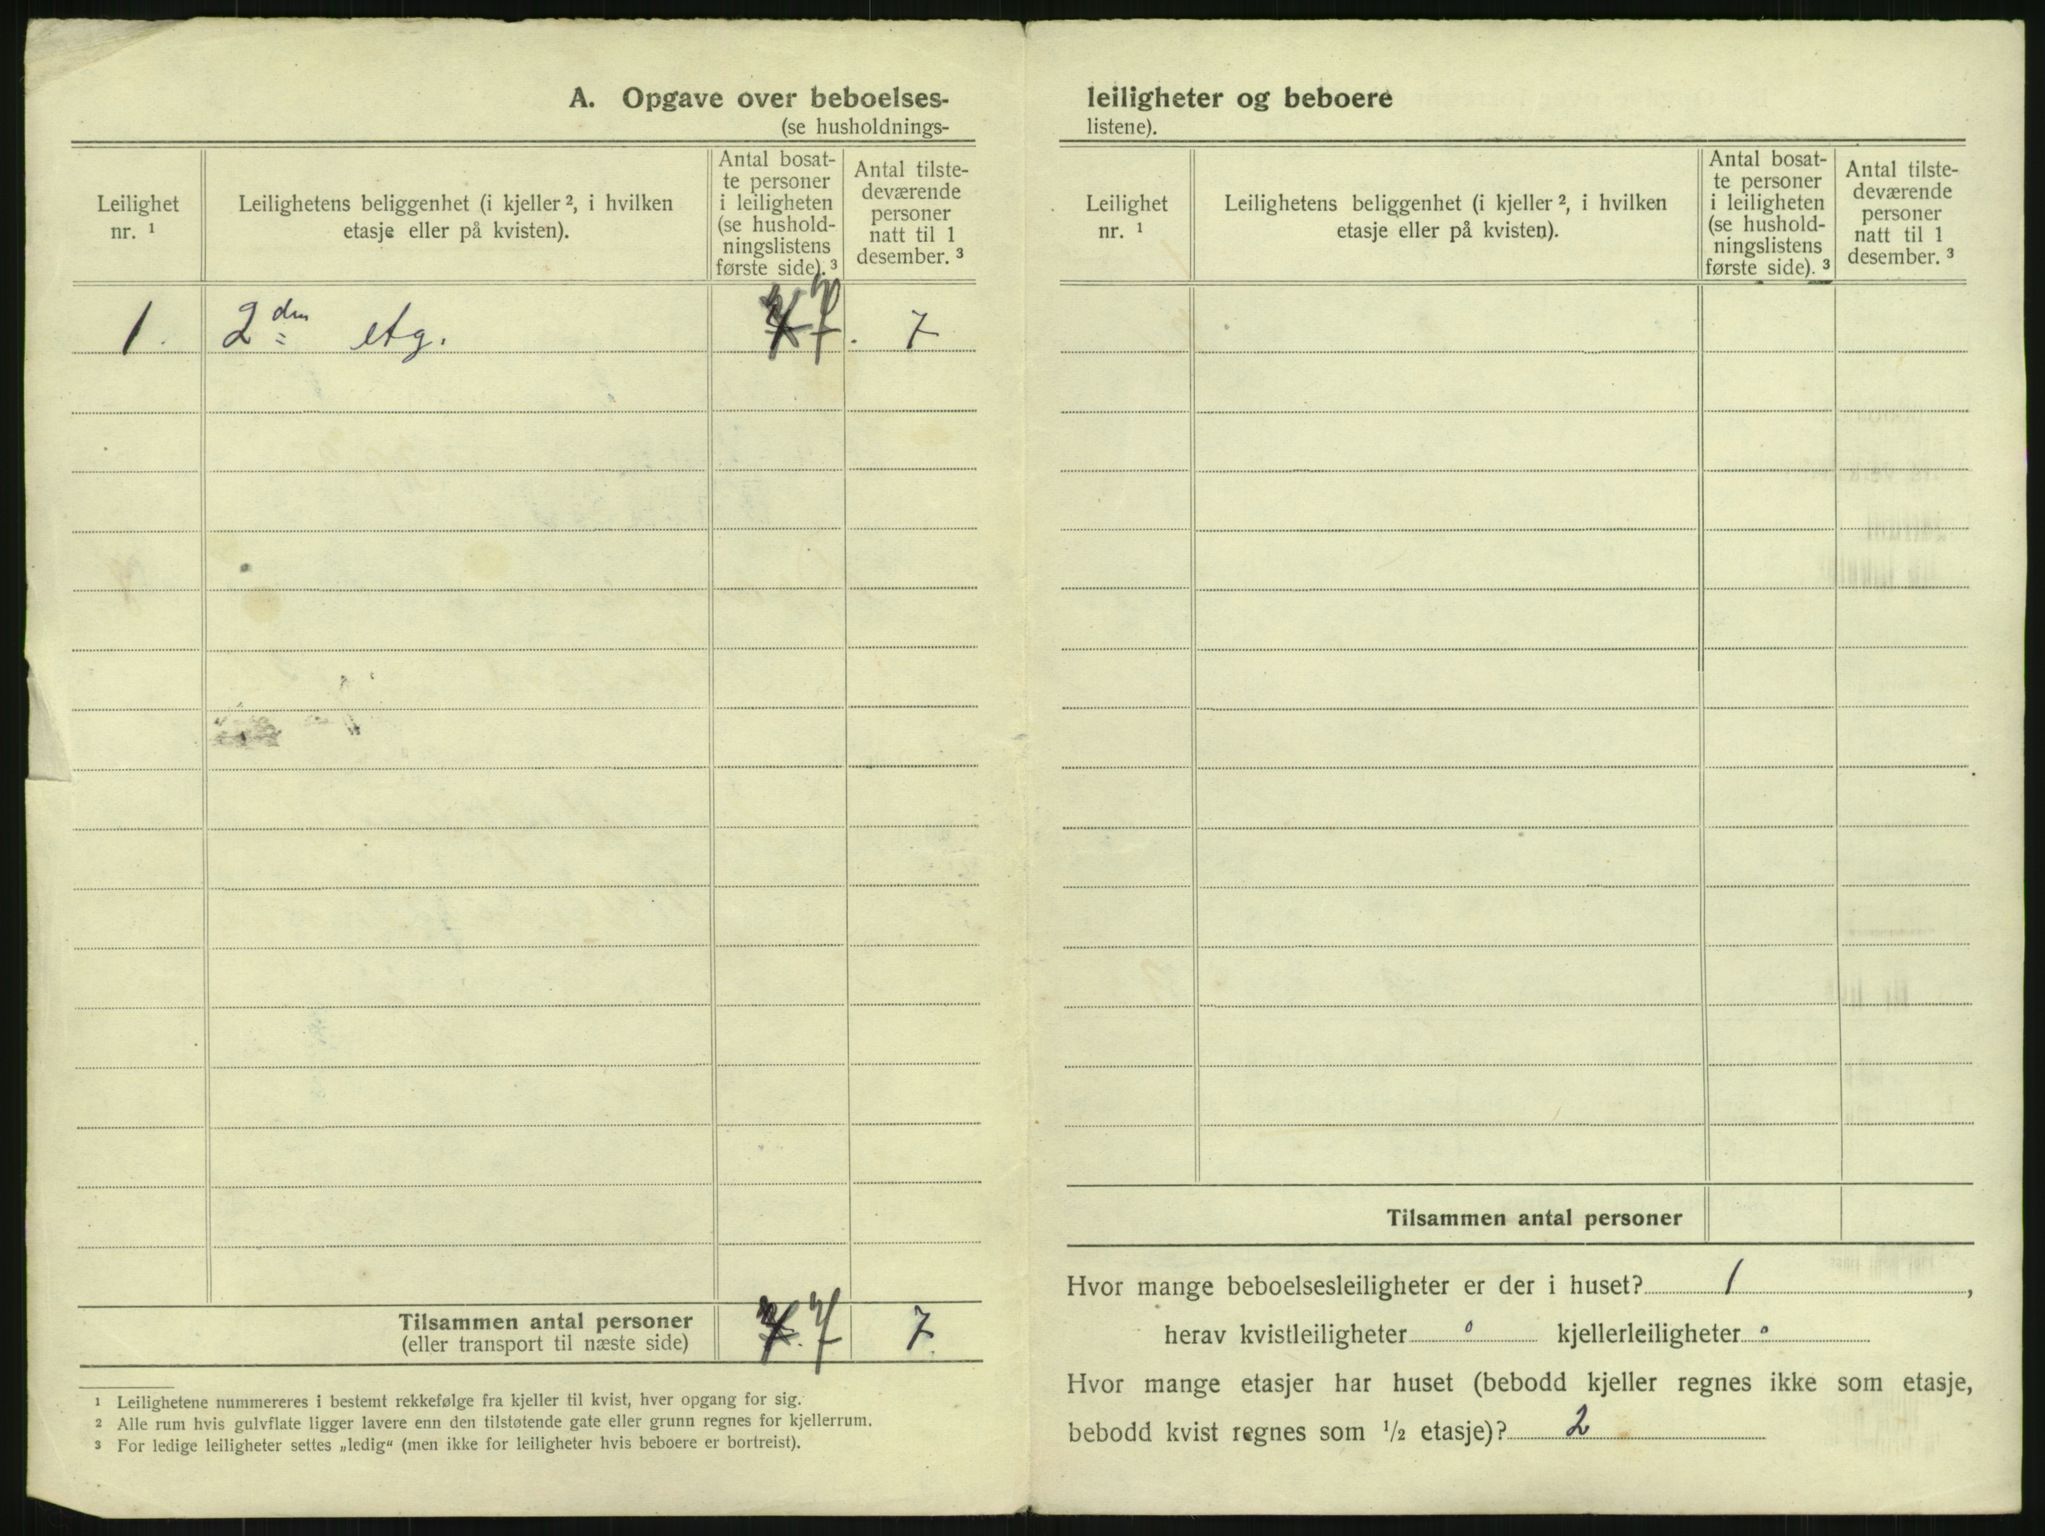 A. Opgave over beboelses-
(se husholdnings-
Leilighet nr. ¹
Leilighetens beliggenhet (i kjeller ², i hvilken etasje eller på kvisten).
Antal bosat-
te personer
i leiligheten
(se hushold-
ningslistens
første side). ³
Antal tilste-
deværende
personer
natt til 1
desember. ³
1. 2den etg. 7 7
Tilsammen antal personer 7 7
(eller transport til næste side)
¹ Leilighetene nummereres i bestemt rekkefølge fra kjeller til kvist, hver opgang for sig.
² Alle rum hvis gulvflate ligger lavere enn den tilstøtende gate eller grunn regnes for kjellerrum.
³ For ledige leiligheter settes „ledig“ (men ikke for leiligheter hvis beboere er bortreist).
leiligheter og beboere
listene).
Leilighet nr. ¹
Leilighetens beliggenhet (i kjeller ², i hvilken etasje eller på kvisten).
Antal bosat-
te personer
i leiligheten
(se hushold-
ningslistens
første side). ³
Antal tilste-
deværende
personer
natt til 1
desember. ³
Tilsammen antal personer
Hvor mange beboelsesleiligheter er der i huset? 1,
herav kvistleiligheter 0 kjellerleiligheter 0
Hvor mange etasjer har huset (bebodd kjeller regnes ikke som etasje,
bebodd kvist regnes som ½ etasje)? 2